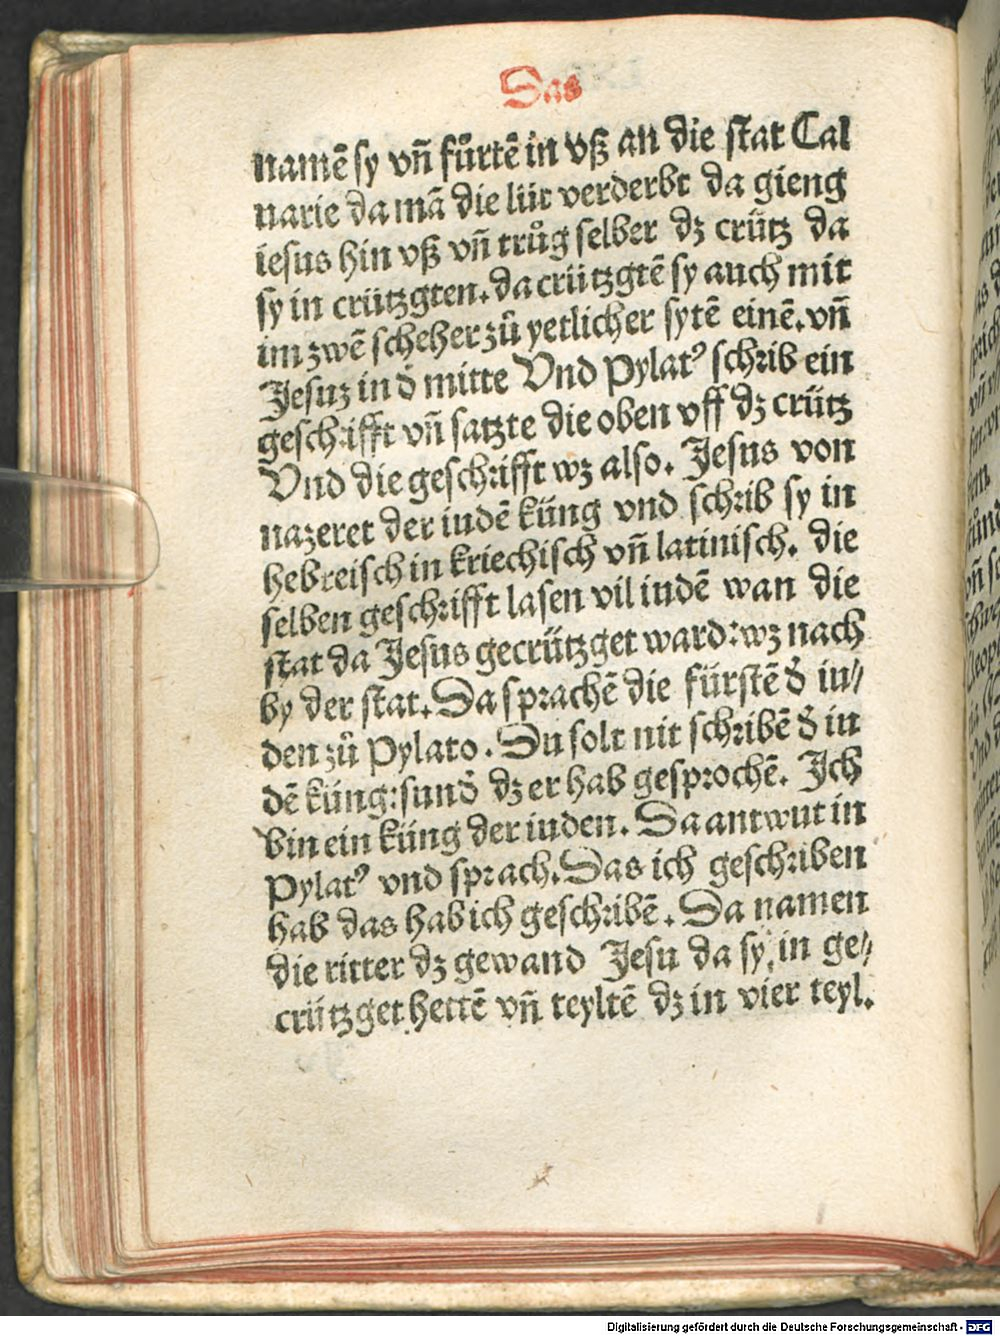 Das
namē sy vñ fůrtē in vß an die stat Cal
uarie da mā die lüt verderbt da gieng
iesus hin vß vñ trůg selber dz crütz da
sy in crützgten. da crützgtē sy auch mit
im zwē scheher zů yetlicher sytē einē. vñ
Jesuz in d̄ mitte Vnd Pylatꝰ schrib ein
geschrifft vñ satzte die oben vff dz crütz
Vnd die geschrifft wz also. Jesus von
nazeret der iudē küng vnd schrib sy in
hebreisch in kriechisch vñ latinisch. die
selben geschrifft lasen vil iudē wan die
stat da Jesus gecrützget ward: wz nach
by der stat. Da sprachē die fürstē d̄ iu⸗
den zů Pylato. Du solt nit schribē d̄ iu
dē küng: sund̄ dz er hab gesprochē. Ich
bin ein küng der iuden. Da antwut in
Pylatꝰ vnd sprach. Das ich geschriben
hab das hab ich geschribē. Da namen
die ritter dz gewand Jesu da sy in ge⸗
crützget hettē vñ teyltē dz in vier teyl.
Digitalisierung gefördert durch die Deutsche Forschungsgemeinschaft - DFG